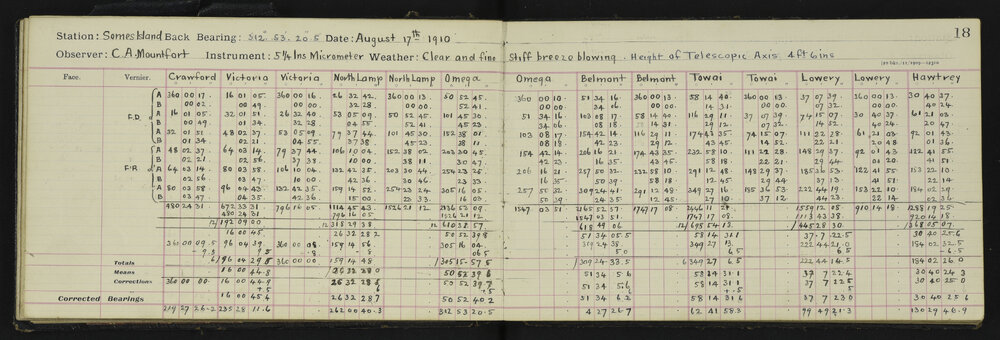 18
Station: Somes Island Back Bearing: 312° 53' 20"5 Date: August 17th 1910
Observer: C.A. Mountfort Instrument: 5¼ Ins Micrometer Weather: Clear and fine Stiff breeze blowing. Height of Telescopic Axis 4ft 6ins
Face. Vernier. Crawford Victoria Victoria North Lamp North Lamp Omega Omega Belmont Belmont Towai Towai Lowery Lowery Hawtrey
A 360 00 17. 16 01 05. 360 00 16. 26 32 42. 360 00 13. 50 52 45. 360 00 10. 51 34 16 360 00 13. 58 14 40. 360 00 13. 37 07 39. 360 00 13. 30 40 37.
B 00 02. 00 49. 00 00. 32 28. 00 00. 52 41. 00 00. 34 16. 00 00. 14 31. 00 00. 07 32. 00 00. 40 24.
F.D. A 16 01 05. 32 01 51. 26 32 40. 53 05 09. 50 52 45. 101 45 30. 51 34 16 103 08 17. 58 14 40. 116 29 11. 37 07 39 74 15 07. 30 40 37. 61 21 03
B 00 49. 01 34. 32 28. 04 55. 52 41. 45 23. 34 06. 08 18. 14 31 29 12. 07 32. 14 52. 40 24. 20 47
A 32 01 51 48 02 37. 53 05 09. 79 37 44 101 45 30. 152 38 01 103 08 17. 154 42 14 116 29 11 174 43 35. 74 15 07. 111 22 28. 61 21 03 92 01 43
B 01 34. 02 21. 04 55. 37 38. 45 23 38 11 08 18 42 23. 29 12. 43 45 14 52. 22 21. 20 48 01 36
F.R A 48 02 37. 64 03 14. 79 37 44. 106 10 04. 152 38 02. 203 30 45. 154 42 14 206 16 21. 174 43 35. 232 58 10. 111 22 28. 148 29 37. 92 01 43 122 41 55
B 02 21. 02 56. 37 38. 10 00. 38 11. 30 47. 42 23. 16 35. 43 45. 58 18 22 21. 29 44 01 20. 41 51
A 64 03 14. 80 03 58. 106 10 04. 132 42 35. 203 30 46. 254 23 25. 206 16 21 257 50 32. 232 58 10 291 12 48. 148 29 37. 185 36 53. 122 41 55 153 22 10.
B 02 56 03 47. 10 00. 42 36. 30 46 23 33. 16 35 50 39. 58 18 12 45. 29 44 37 13. 41 51 22 14
A 80 03 58. 96 04 43. 132 42 35. 159 14 52. 254 23 24 305 16 05. 257 50 32 309 24 41. 291 12 48. 349 27 16 185 36 53. 222 44 19. 153 22 10. 184 02 29
B 03 47. 04 35 42 36. 15 00. 23 33. 16 10. 50 39 24 35. 12 45 27 10. 37 12 44 23. 22 14 02 36
480 24 31 672 33 31. 796 16 05. 1114 45 43. 1526 21 12. 2136 52 09. 1547 03 51 2165 52 57. 1747 17 08. 2446 11 28 1559 12 08 910 14 18. 1288 19 25.
480 24 31 796 16 05. 1526 21 12 1547 03 51. 1747 17 08. 1113 43 38. 920 14 18
12) 192 09 00 12) 318 29 38 12 610 38 57. 618 49 06 12) 698 54 13. /445 28 30. /368 05 07.
16 00 45 26 32 28 2 50 52 39.8 51 34 05.5 58 14 31.1 37. 7. 22.5 30 40 25.6
360 00 09.5 96 04 39. 360 00 08. 159 14 56 305 16 04. 309 24 38. 349 27 13. 222 44 21.0 184 02 32.5
Totals 6)96 04 29.5 360 00 00 159 14 48 /305 15 57.5 /309 24 33.5 6)349 27 6.5 222 44 14.5 184 02 26.0
Means 16 00 44.8 26 32 28 0 50 52 39 6 51 34 5 6 58 14 31 1 37 7 22 4 30 40 24 3
Corrections 360 00 00. 16 00 44.9 26 32 28 6 50 52 39 7 51 34 5.6 58 14 31 1 37 7 22 5 30 40 25 0
Corrected Bearings 16 00 45 4 26 32 28 7 50 52 40 2 51 34 6 2 58 14 31 6 37 7 23 0 30 40 25 6
219 27 26.2 235 28 11.6 262 00 40.3 312 53 20.5 4 27 26.7 62 41 58.3 99 49 21.3 130 29 46.9